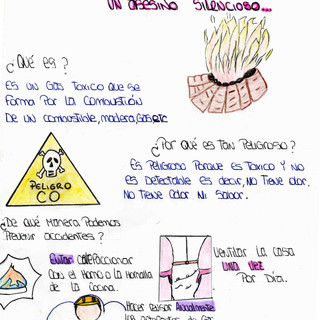 UN ASESINO SILENCIOSO...
¿QUÉ ES?
ES UN GAS TOXICO QUE SE
FORMA POR LA COMBUSTIÓN
DE UN COMBUSTIBLE, MADERA, GAS, ETC
¿POR QUÉ ES TAN PELIGROSO?
ES PELIGROSO PORQUE ES TOXICO Y NO
ES DETECTABLE ES DECIR, NO TIENE OLOR,
NO TIENE COLOR NI SABOR.
PELIGRO
CO
¿DE QUÉ MANERA PODEMOS
PREVENIR ACCIDENTES?
EVITAR CALEFACCIONAR
CON EL HORNO O LA HORNALLA
DE LA COCINA.
VENTILAR LA CASA
UNA VEZ
POR DÍA.
HACER REVISAR ANUALMENTE
LOS ARTEFACTOS DE GAS